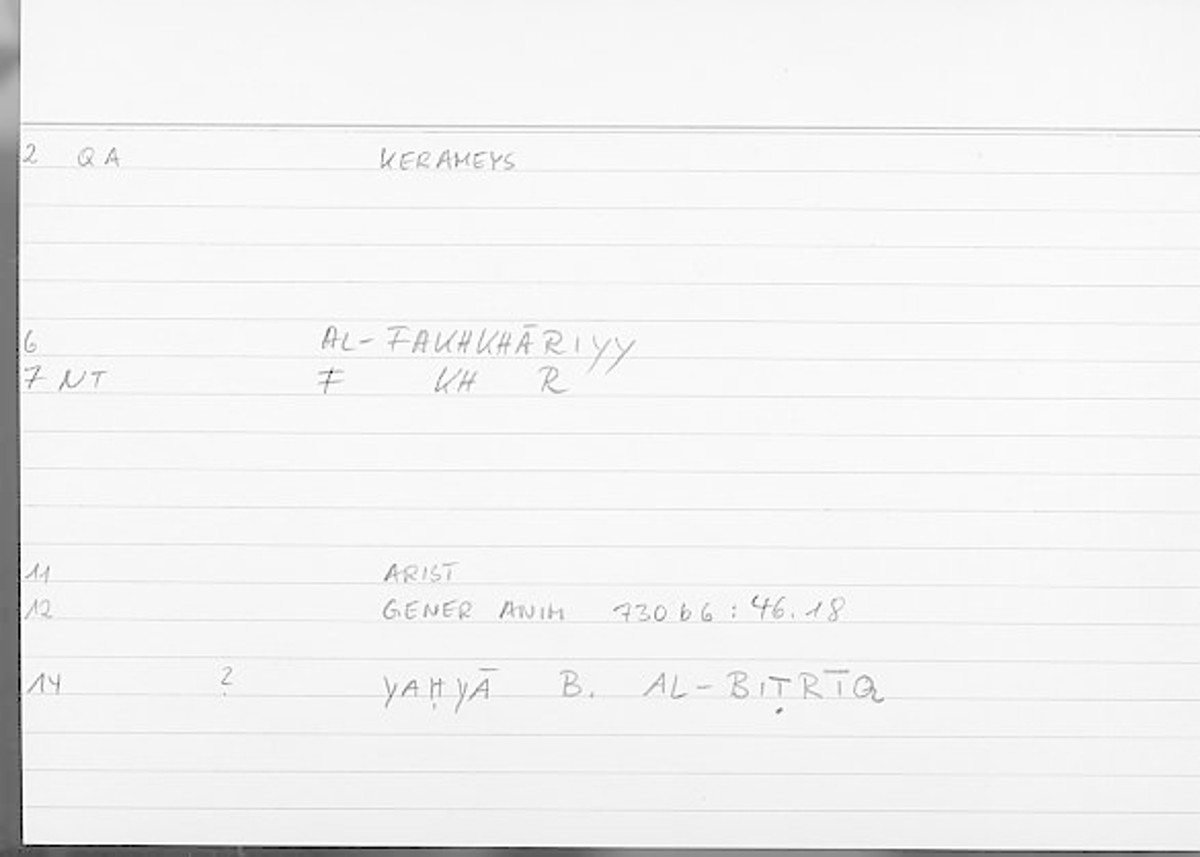 2 QA KERAMEYS
6 AL-FAKHKHĀRIYY
7 NT F KH R
11 ARIST
12 GENER ANIM 730 b 6 : 46.18
14 ? YAḤYĀ B. AL-BIṬRĪQ